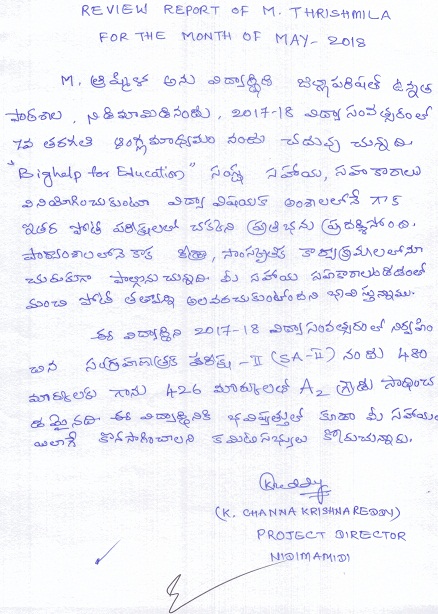 REVIEW REPORT OF M. THRISHMILA
FOR THE MONTH OF MAY-2018
M. త్రిష్మిళ అను విద్యార్థిని జిల్లాపరిషత్ ఉన్నత
పాఠశాల, నిడిమామిడినందు, 2017-18 విద్యా సంవత్సరంలో
7వ తరగతి ఆంగ్లమాధ్యమం నందు చదువు చున్నది.
"Bighelp for Education" సంస్థ సహాయ, సహకారాలు
వినియోగించుకుంటూ విద్యా విషయక అంశాలలోనే గాక
ఇతర పోటీ పరీక్షలలో చక్కని ప్రతిభను ప్రదర్శిస్తోంది.
పాఠ్యాంశాలలోనె కాక క్రీడా, సాంస్కృతిక కార్యక్రమాలలోనూ
చురుకుగా పాల్గొనుచున్నది. మీ సహాయ సహకారాలందడంతో
మంచి పోటీ తత్వాన్ని అలవరచుకుంటోందని భావిస్తున్నాము.
ఈ విద్యార్థిని 2017-18 విద్యా సంవత్సరంలో నిర్వహిం
చిన సంగ్రహణాత్మక పరీక్ష -II (SA-II) నందు 480
మార్కులకు గాను 426 మార్కులతో A2 గ్రేడు సాధించ
డమైనది. ఈ విద్యార్థినికి భవిష్యత్తులో కూడా మీ సహాయం
యిలాగే కొనసాగించాలని కమిటీసభ్యులు కోరుచున్నారు.
(K. CHANNA KRISHNA REDDY)
PROJECT DIRECTOR
NIDIMAMIDI